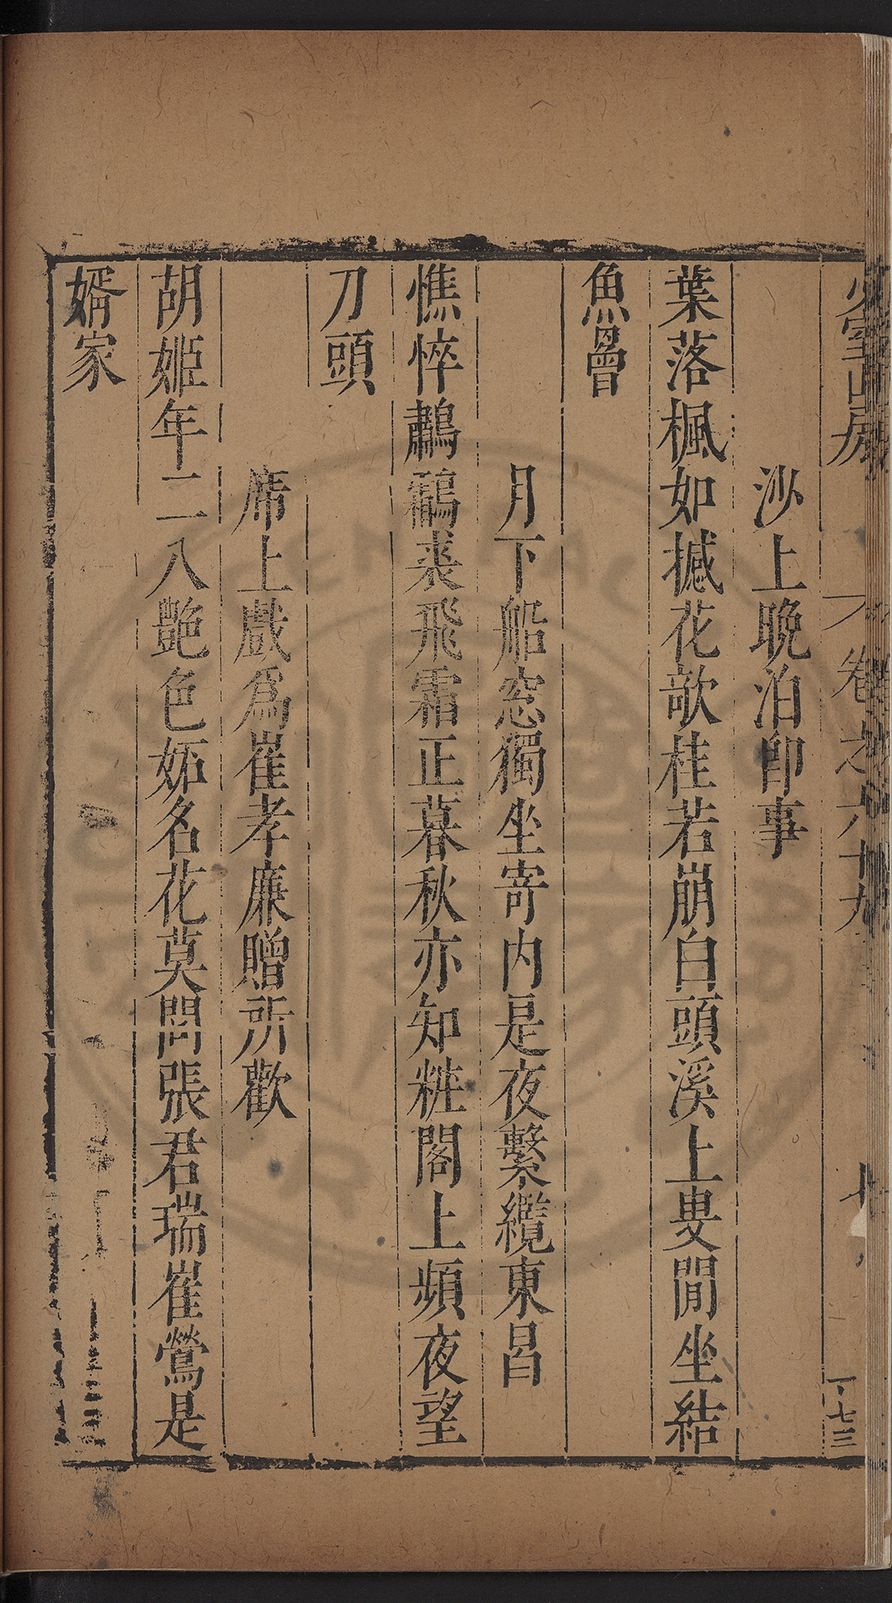 少室山房
卷之六十九
七
一七三
沙上晩泊即事
葉落楓如撼花欹桂若崩白頭溪上叟閒坐結
魚罾
月下船窓獨坐寄内是夜繫纜東昌
憔悴鷫鸘裘飛霜正暮秋亦知粧閣上頻夜望
刀頭
席上戲爲崔孝廉贈所歡
胡姬年二八艷色妬名花莫問張君瑞崔鶯是
婿家